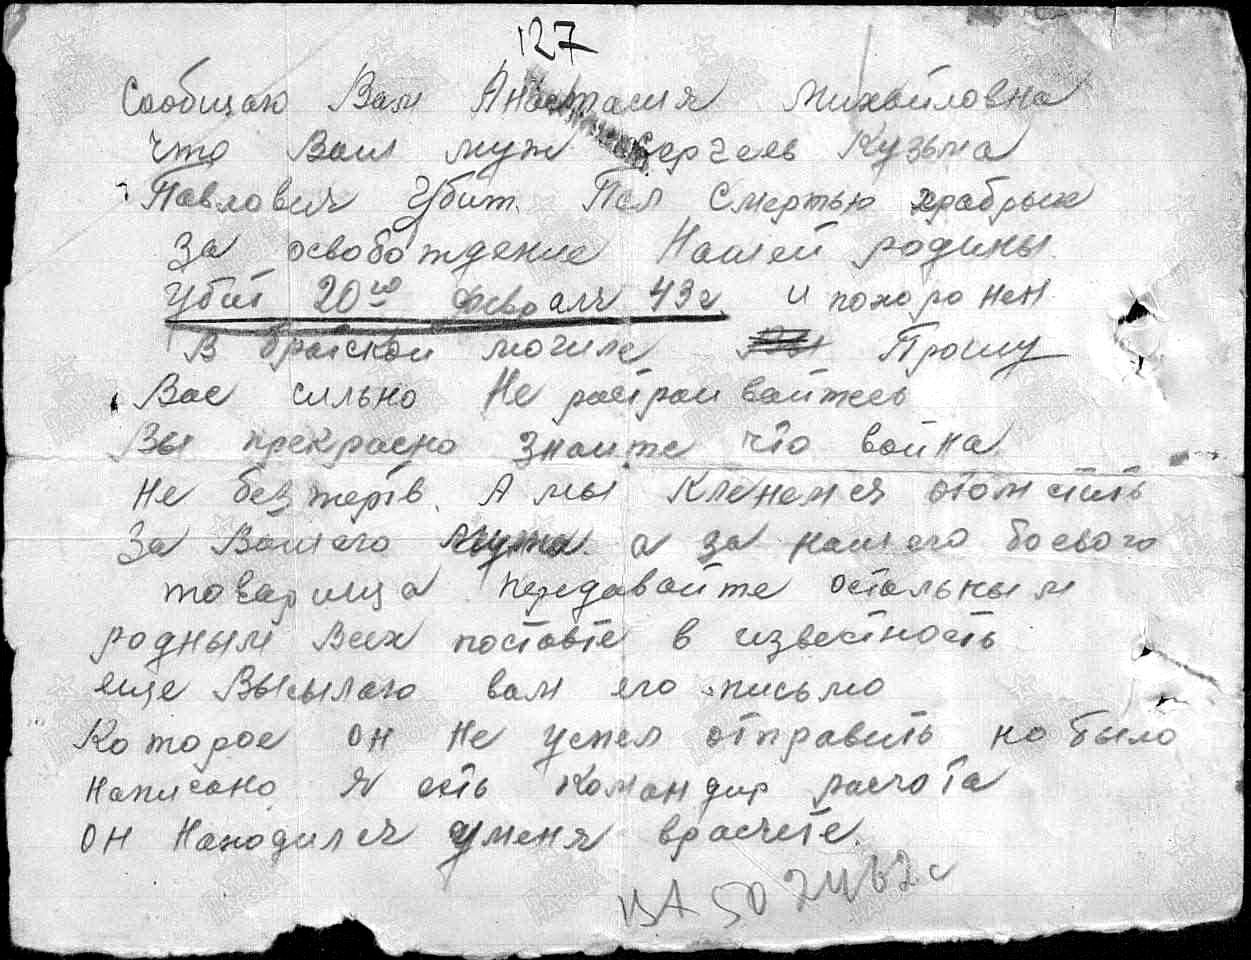 127
Сообщаю Вам Анастасия Михайловна
что Ваш муж Сергеев Кузьма
Павлович Убит. Пал Смертью храбрых
За освобождение Нашей родины.
Убит 20го февраля 43г. и похоронен
В братской могиле Прошу
Вас сильно Не растраивайтесь
Вы прекрасно Знаите что война
Не без жертв. А мы Кленемся отомстить
За Вашего мужа а за нашего боевого
товарища передавайте остальным
родным Всех поставте в известность
еще Высылаю вам его письмо
Которое он Не успел отправить но было
Написано Я есть Командир расчота
он Находился уменя врасчете.